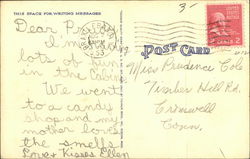 THIS SPACE FOR WRITING MESSAGES
Dear Prudy
I'm having
lots of fun
in the Cabin
We went
to a candy
shop and my
mother loves
the smells
Love + Kisses Ellen
3-
POST CARD
Miss Prudence Cole
Timber Hill Rd.
Cromwell
Conn.
2